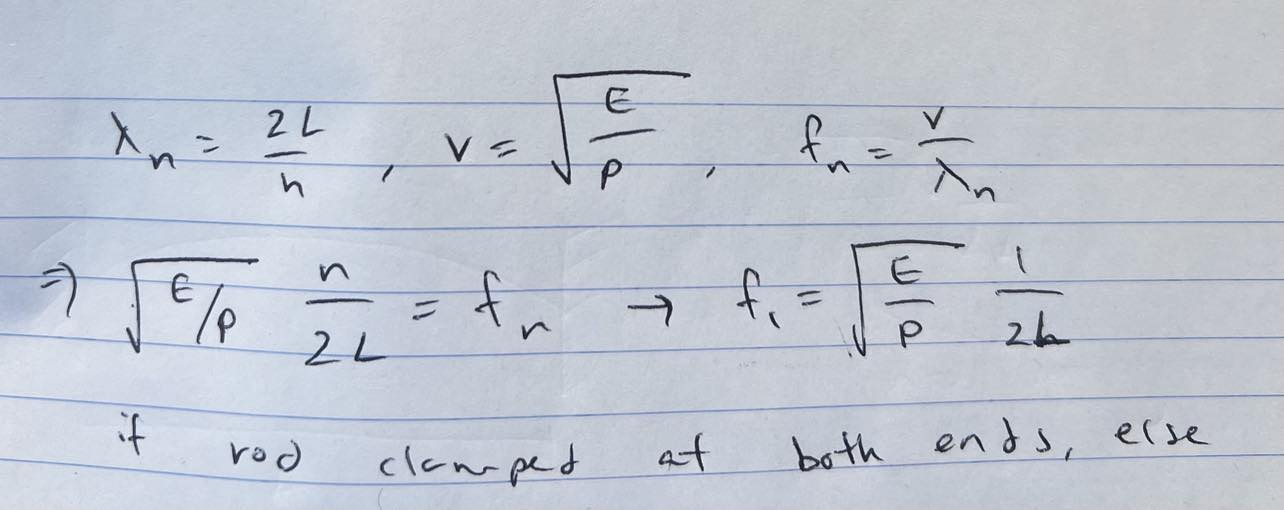 λₙ = 2L/n , v = √(E/ρ) , fₙ = v/λₙ
⇒ √(E/ρ) n/2L = fₙ → f₁ = √(E/ρ) 1/2L
if rod clamped at both ends, else